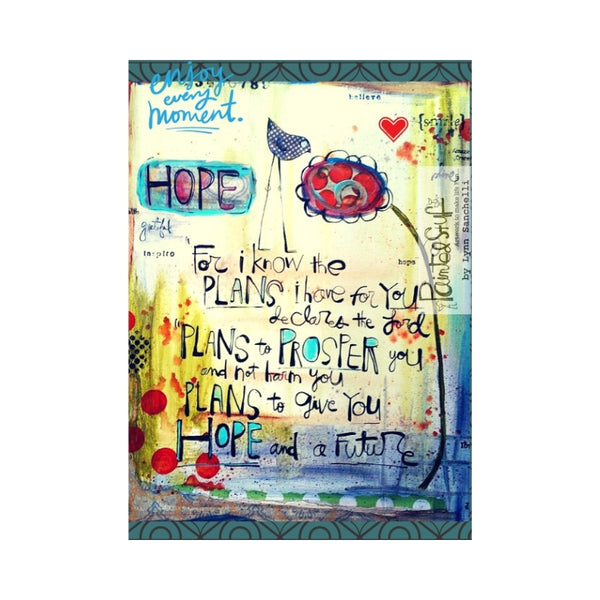 enjoy
every
moment.
believe
{smile}
HOPE
grateful
inspire
hope
"For i know the
PLANS i have for YOU
declares the Lord
"PLANS to PROSPER you
and not harm you
PLANS to give YOU
HOPE and a FUTURE
Painted Stuff
Artwork to make life
by Lynn Sanchelli